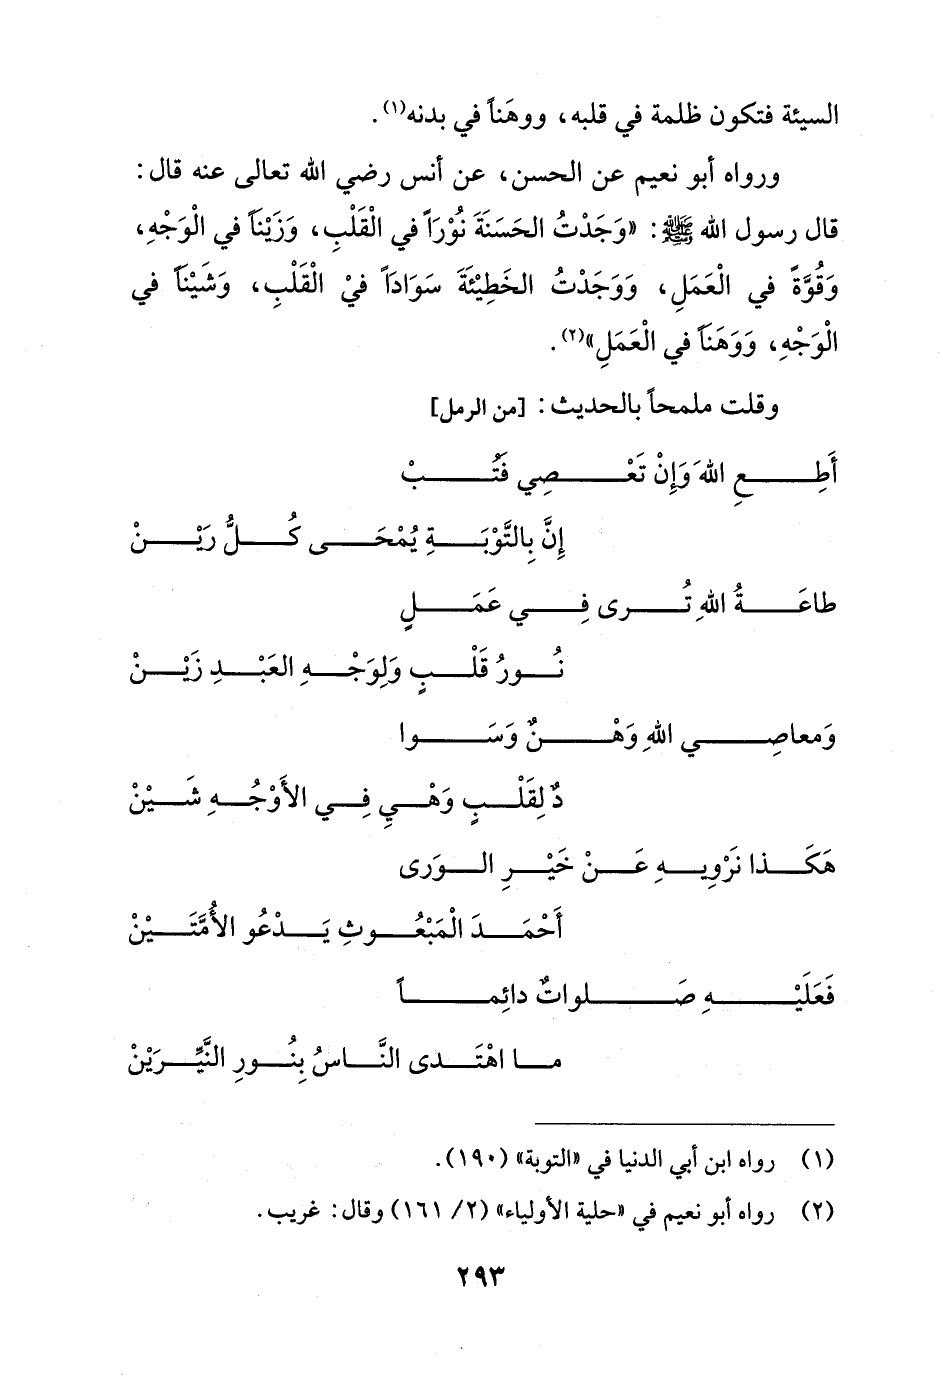 السيئة فتكون ظلمة في قلبه، ووهَناً في بدنه(١).
ورواه أبو نعيم عن الحسن، عن أنس رضي الله تعالى عنه قال:
قال رسول الله ﷺ: «وَجَدْتُ الحَسَنَةَ نُوْرَاً في الْقَلْبِ، وَزَيْنَاً في الْوَجْهِ،
وَقُوَّةً في الْعَمَلِ، وَوَجَدْتُ الخَطِيْئَةَ سَوَادَاً فيْ الْقَلْبِ، وَشَيْنَاً في
الْوَجْهِ، وَوَهَنَاً في الْعَمَلِ»(٢).
وقلت ملمحاً بالحديث: [من الرمل]
أَطِـعِ اللهَ وَإِنْ تَعْـصِي فَتُـبْ
إِنَّ بِالتَّوْبَـةِ يُمْحَـى كُـلُّ رَيْـنْ
طاعَـةُ اللهِ تُـرى فِـي عَمَـلٍ
نُـورُ قَلْـبٍ وَلِوَجْـهِ العَبْـدِ زَيْـنْ
وَمعاصِـي اللهِ وَهْـنٌ وَسَـوا
دٌ لِقَلْـبٍ وَهْـيِ فِـي الأَوْجُـهِ شَـيْنْ
هَكَـذا نَرْوِيـهِ عَـنْ خَيْـرِ الـوَرى
أَحْمَـدَ الْمَبْعُـوثِ يَـدْعُو الأُمَّتَـيْنْ
فَعَلَيْـهِ صَـلواتٌ دائِمـاً
مـا اهْتَـدى النَّـاسُ بِنُـورِ النَّيِّـرَيْنْ
(١) رواه ابن أبي الدنيا في «التوبة» (١٩٠).
(٢) رواه أبو نعيم في «حلية الأولياء» (٢/ ١٦١) وقال: غريب.
٢٩٣